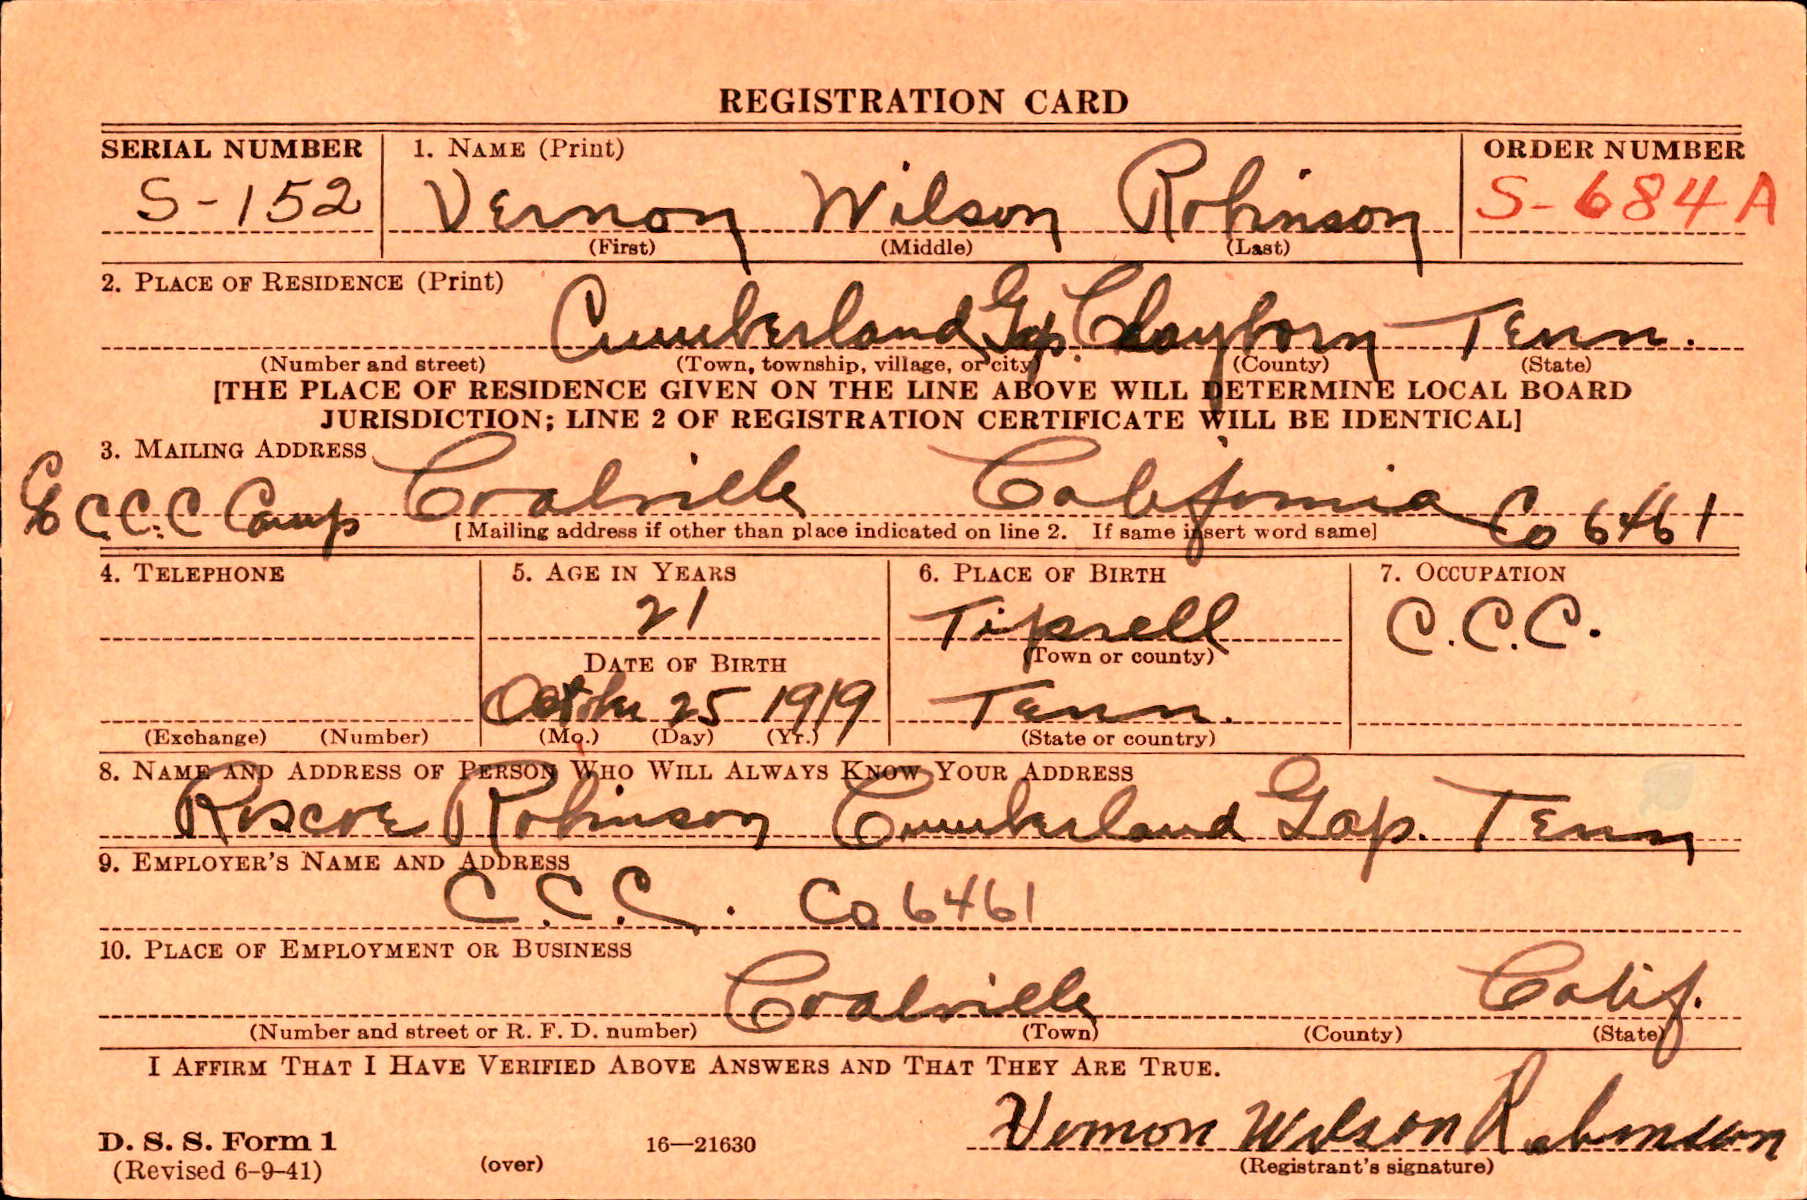 REGISTRATION CARD
SERIAL NUMBER 1. NAME (Print) ORDER NUMBER
S-152 Vernon Wilson Robinson S-684A
(First) (Middle) (Last)
2. PLACE OF RESIDENCE (Print)
Cumberland Gap. Clayborn Tenn.
(Number and street) (Town, township, village, or city) (County) (State)
[THE PLACE OF RESIDENCE GIVEN ON THE LINE ABOVE WILL DETERMINE LOCAL BOARD
JURISDICTION; LINE 2 OF REGISTRATION CERTIFICATE WILL BE IDENTICAL]
3. MAILING ADDRESS
C.C.C Camp Coalville California Co 6461
[Mailing address if other than place indicated on line 2. If same insert word same]
4. TELEPHONE 5. AGE IN YEARS 6. PLACE OF BIRTH 7. OCCUPATION
21 Tiprell C.C.C.
DATE OF BIRTH (Town or county)
October 25 1919 Tenn.
(Exchange) (Number) (Mo.) (Day) (Yr.) (State or country)
8. NAME AND ADDRESS OF PERSON WHO WILL ALWAYS KNOW YOUR ADDRESS
Roscoe Robinson Cumberland Gap. Tenn
9. EMPLOYER'S NAME AND ADDRESS
C.C.C. Co 6461
10. PLACE OF EMPLOYMENT OR BUSINESS
Coalville Calif.
(Number and street or R. F. D. number) (Town) (County) (State)
I AFFIRM THAT I HAVE VERIFIED ABOVE ANSWERS AND THAT THEY ARE TRUE.
Vernon Wilson Robinson
D. S. S. Form 1 16—21630
(Revised 6-9-41) (over) (Registrant's signature)